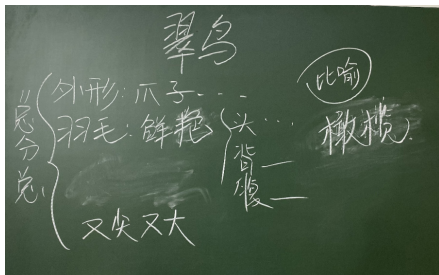 翠鸟
"总分总"
外形:爪子....
羽毛:鲜艳
头...
背—
腹—
又尖又大
比喻
橄榄